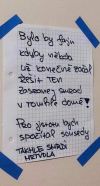 Bylo by fajn
kdyby někdo
už konečně začal
řešit ten
zasranej smrad
v tomhle domě!
Pro jistou bych
spočítal sousedy
TAKHLE SMRDÍ
MRTVOLA